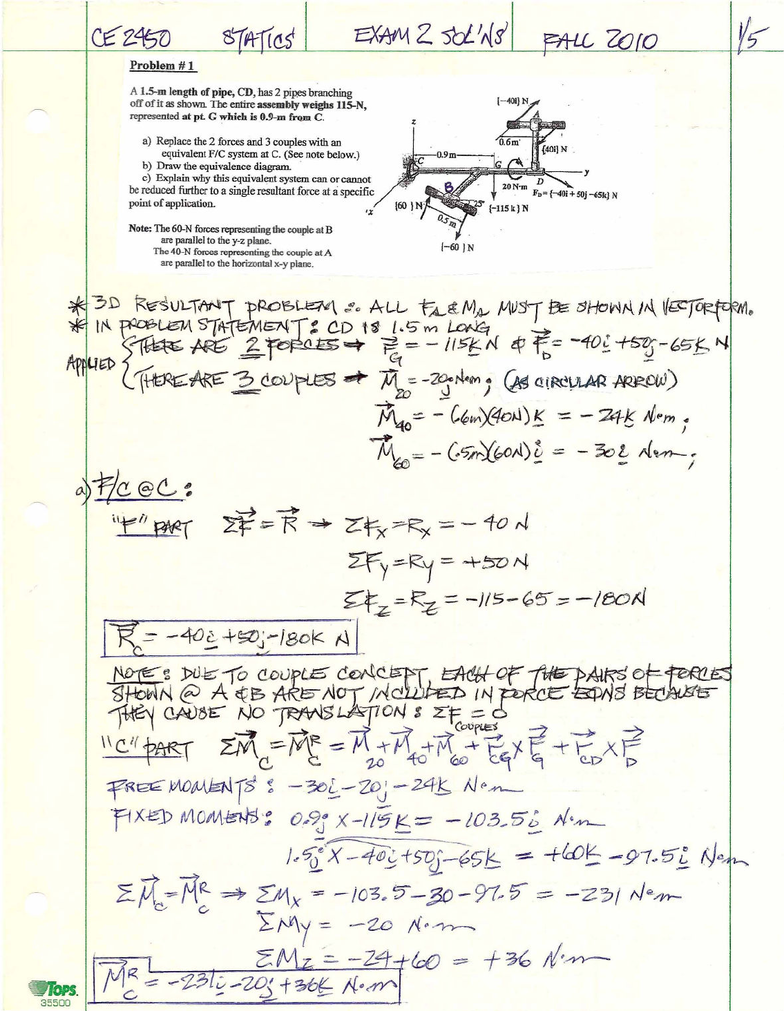 CE 2450 STATICS EXAM 2 SOL'NS FALL 2010 1/5
Problem # 1
A 1.5-m length of pipe, CD, has 2 pipes branching
off of it as shown. The entire assembly weighs 115-N,
represented at pt. G which is 0.9-m from C.
a) Replace the 2 forces and 3 couples with an
equivalent F/C system at C. (See note below.)
b) Draw the equivalence diagram.
c) Explain why this equivalent system can or cannot
be reduced further to a single resultant force at a specific
point of application.
Note: The 60-N forces representing the couple at B
are parallel to the y-z plane.
The 40-N forces representing the couple at A
are parallel to the horizontal x-y plane.
{-40i} N
z
0.6 m
{40i} N
C
0.9 m
G
y
B
20 N-m
D
F_D = {-40i + 50j -65k} N
x
{60 } N
25°
{-115 k} N
0.5 m
{-60 } N
* 3D RESULTANT PROBLEM ∴ ALL F_A & M_A MUST BE SHOWN IN VECTOR FORM.
* IN PROBLEM STATEMENT: CD IS 1.5 m LONG
APPLIED { THERE ARE 2 FORCES → F_G = -115K N & F_D = -40i +50j -65K N
THERE ARE 3 COUPLES → M_20 = -20j N·m; (AS CIRCULAR ARROW)
M_40 = - (.6m)(40N) K = -24K N·m;
M_60 = - (.5m)(60N) i = -30i N·m;
a) F/C @ C:
"F" PART ΣF = R → ΣFx = Rx = -40 N
ΣFy = Ry = +50 N
ΣFz = Rz = -115-65 = -180N
R_C = -40i +50j -180K N
NOTE: DUE TO COUPLE CONCEPT, EACH OF THE PAIRS OF FORCES
SHOWN @ A & B ARE NOT INCLUDED IN FORCE EQNS BECAUSE
THEY CAUSE NO TRANSLATION: ΣF = 0
COUPLES
"C" PART ΣM_C = M_C^R = M_20 + M_40 + M_60 + r_CG X F_G + r_CD X F_D
FREE MOMENTS: -30i -20j -24k N·m
FIXED MOMENS: 0.9j X -115K = -103.5i N·m
1.5j X -40i +50j -65k = +60k -97.5i N·m
ΣM_C = M_C^R ⇒ ΣMx = -103.5 -30 -97.5 = -231 N·m
ΣMy = -20 N·m
ΣMz = -24 +60 = +36 N·m
M_C^R = -231i -20j +36k N·m
TOPS.
35500